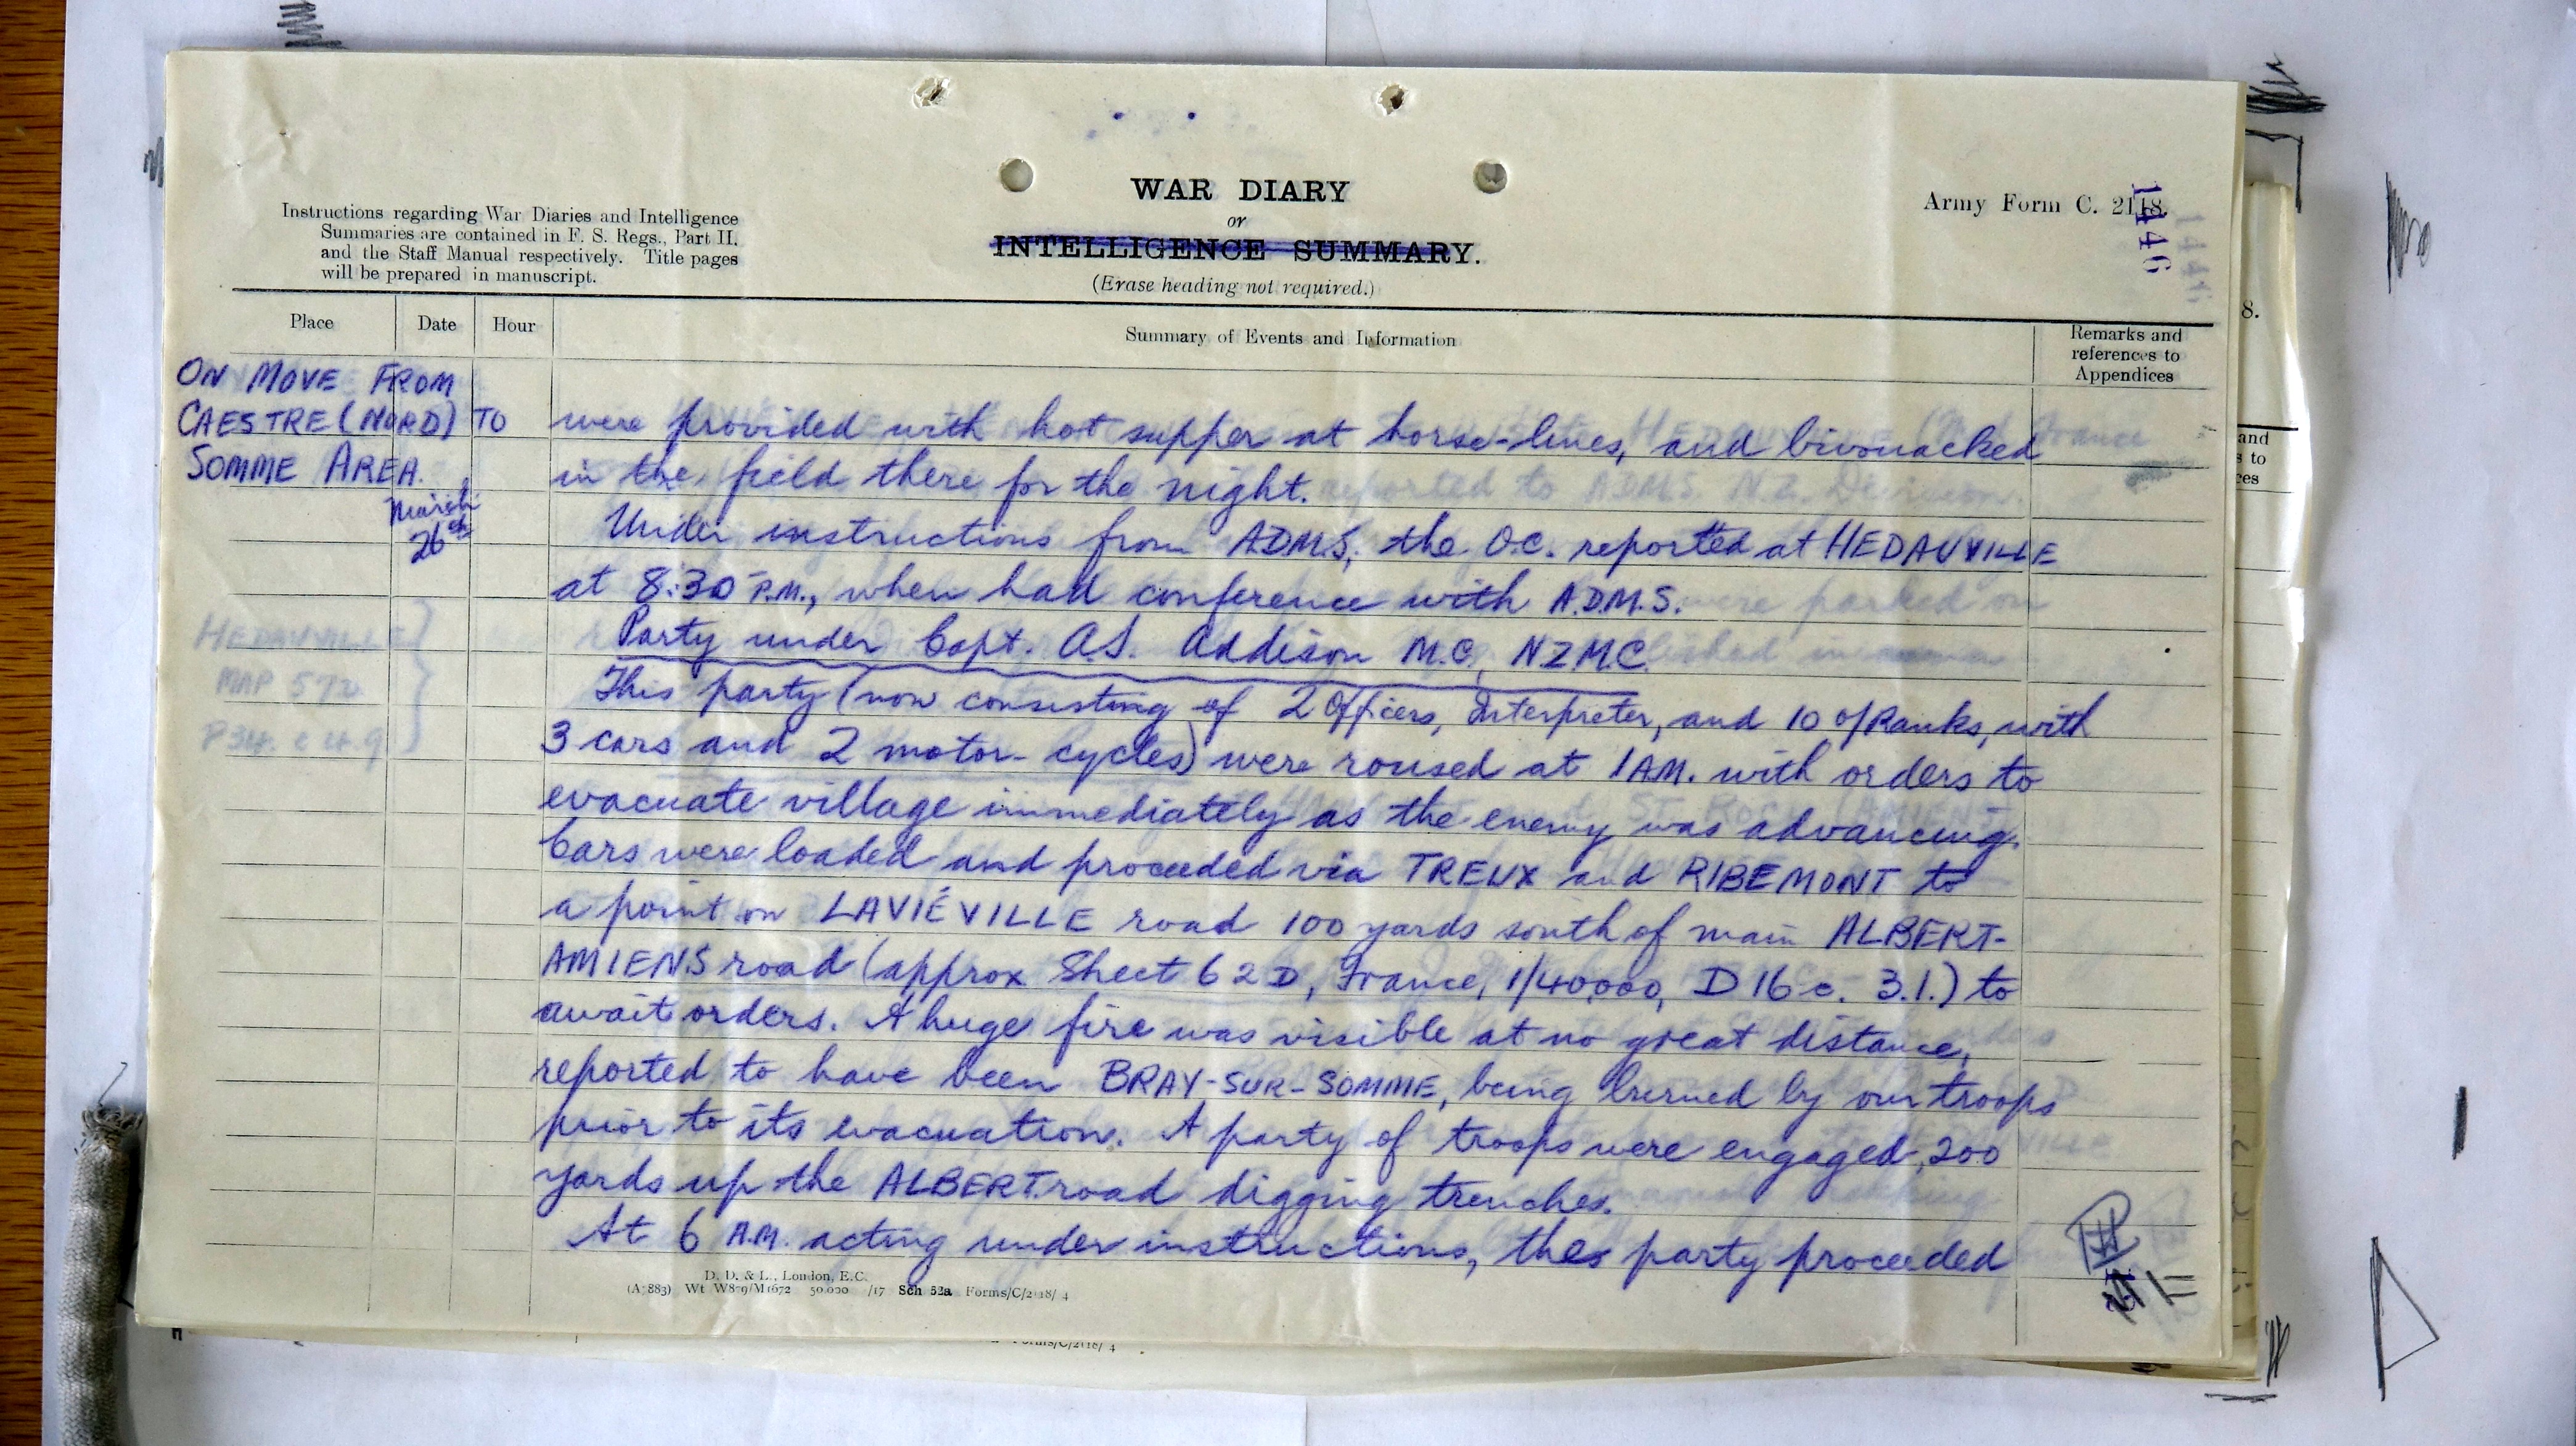 WAR DIARY
or
INTELLIGENCE SUMMARY.
(Erase heading not required.)
Instructions regarding War Diaries and Intelligence
Summaries are contained in F. S. Regs., Part II.
and the Staff Manual respectively. Title pages
will be prepared in manuscript.
Army Form C. 2118.
1446
Place
Date
Hour
Summary of Events and Information
Remarks and
references to
Appendices
ON MOVE FROM
CAESTRE (NORD) TO
SOMME AREA.
March
26th
were provided with hot supper at horse-lines, and bivouacked
in the field there for the night.
Under instructions from ADMS, the O.C. reported at HEDAUVILLE
at 8:30 P.M., when had conference with A.D.M.S.
Party under Capt. A.S. Addison M.C, NZMC.
This party (now consisting of 2 Officers, Interpreter, and 10 o/Ranks, with
3 cars and 2 motor-cycles) were roused at 1 AM. with orders to
evacuate village immediately as the enemy was advancing.
Cars were loaded and proceeded via TREUX and RIBEMONT to
a point on LAVIÉVILLE road 100 yards south of main ALBERT-
AMIENS road (approx Sheet 62D, France, 1/40,000, D 16 c. 3.1.) to
await orders. A huge fire was visible at no great distance,
reported to have been BRAY-SUR-SOMME, being burned by our troops
prior to its evacuation. A party of troops were engaged, 200
yards up the ALBERT road digging trenches.
At 6 A.M. acting under instructions, the party proceeded
D. D. & L., London, E.C.
(A7883) Wt W879/M1672 50,000 /17 Sch 52a Forms/C/2118/4